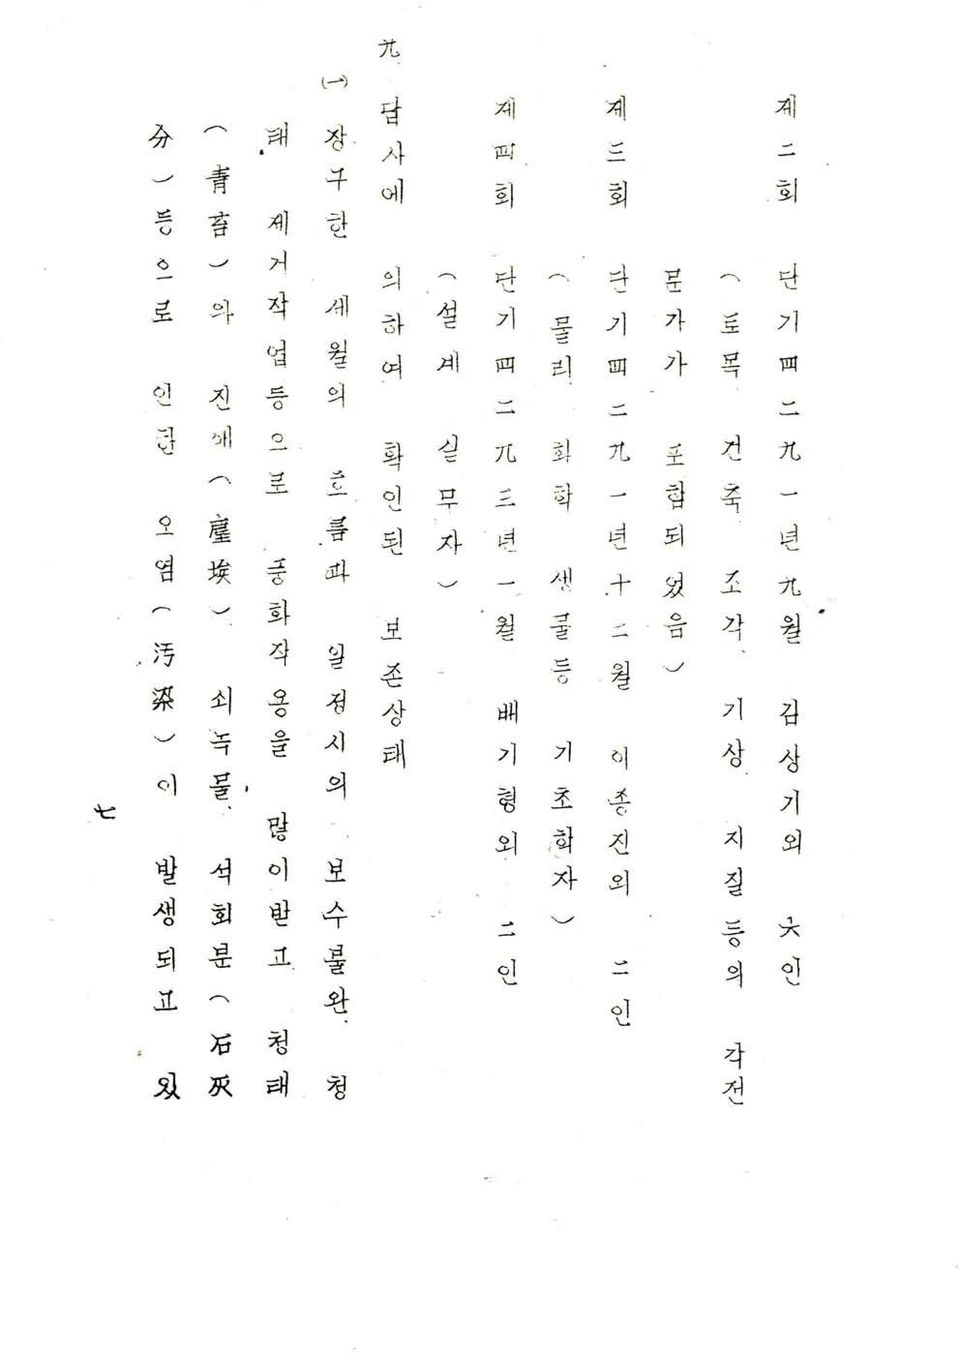 제二회 단기四二九一년九월 김상기외 六인
(토목 건축 조각 기상 지질등의 각전
문가가 포합되었음)
제三회 단기四二九一년十二월 이종진외 二인
(물리 화학 생물등 기초학자)
제四회 단기四二九三년一월 배기형외 二인
(설계 실무자)
九 답사에 의하여 확인된 보존상태
(一) 장구한 세월의 흐름과 일정시의 보수불완 청
태 제거작업등으로 풍화작용을 많이받고 청태
(靑苔)와 진애(塵埃) 쇠녹물, 석회분(石灰
分)등으로 인한 오염(汚染)이 발생되고 있
七